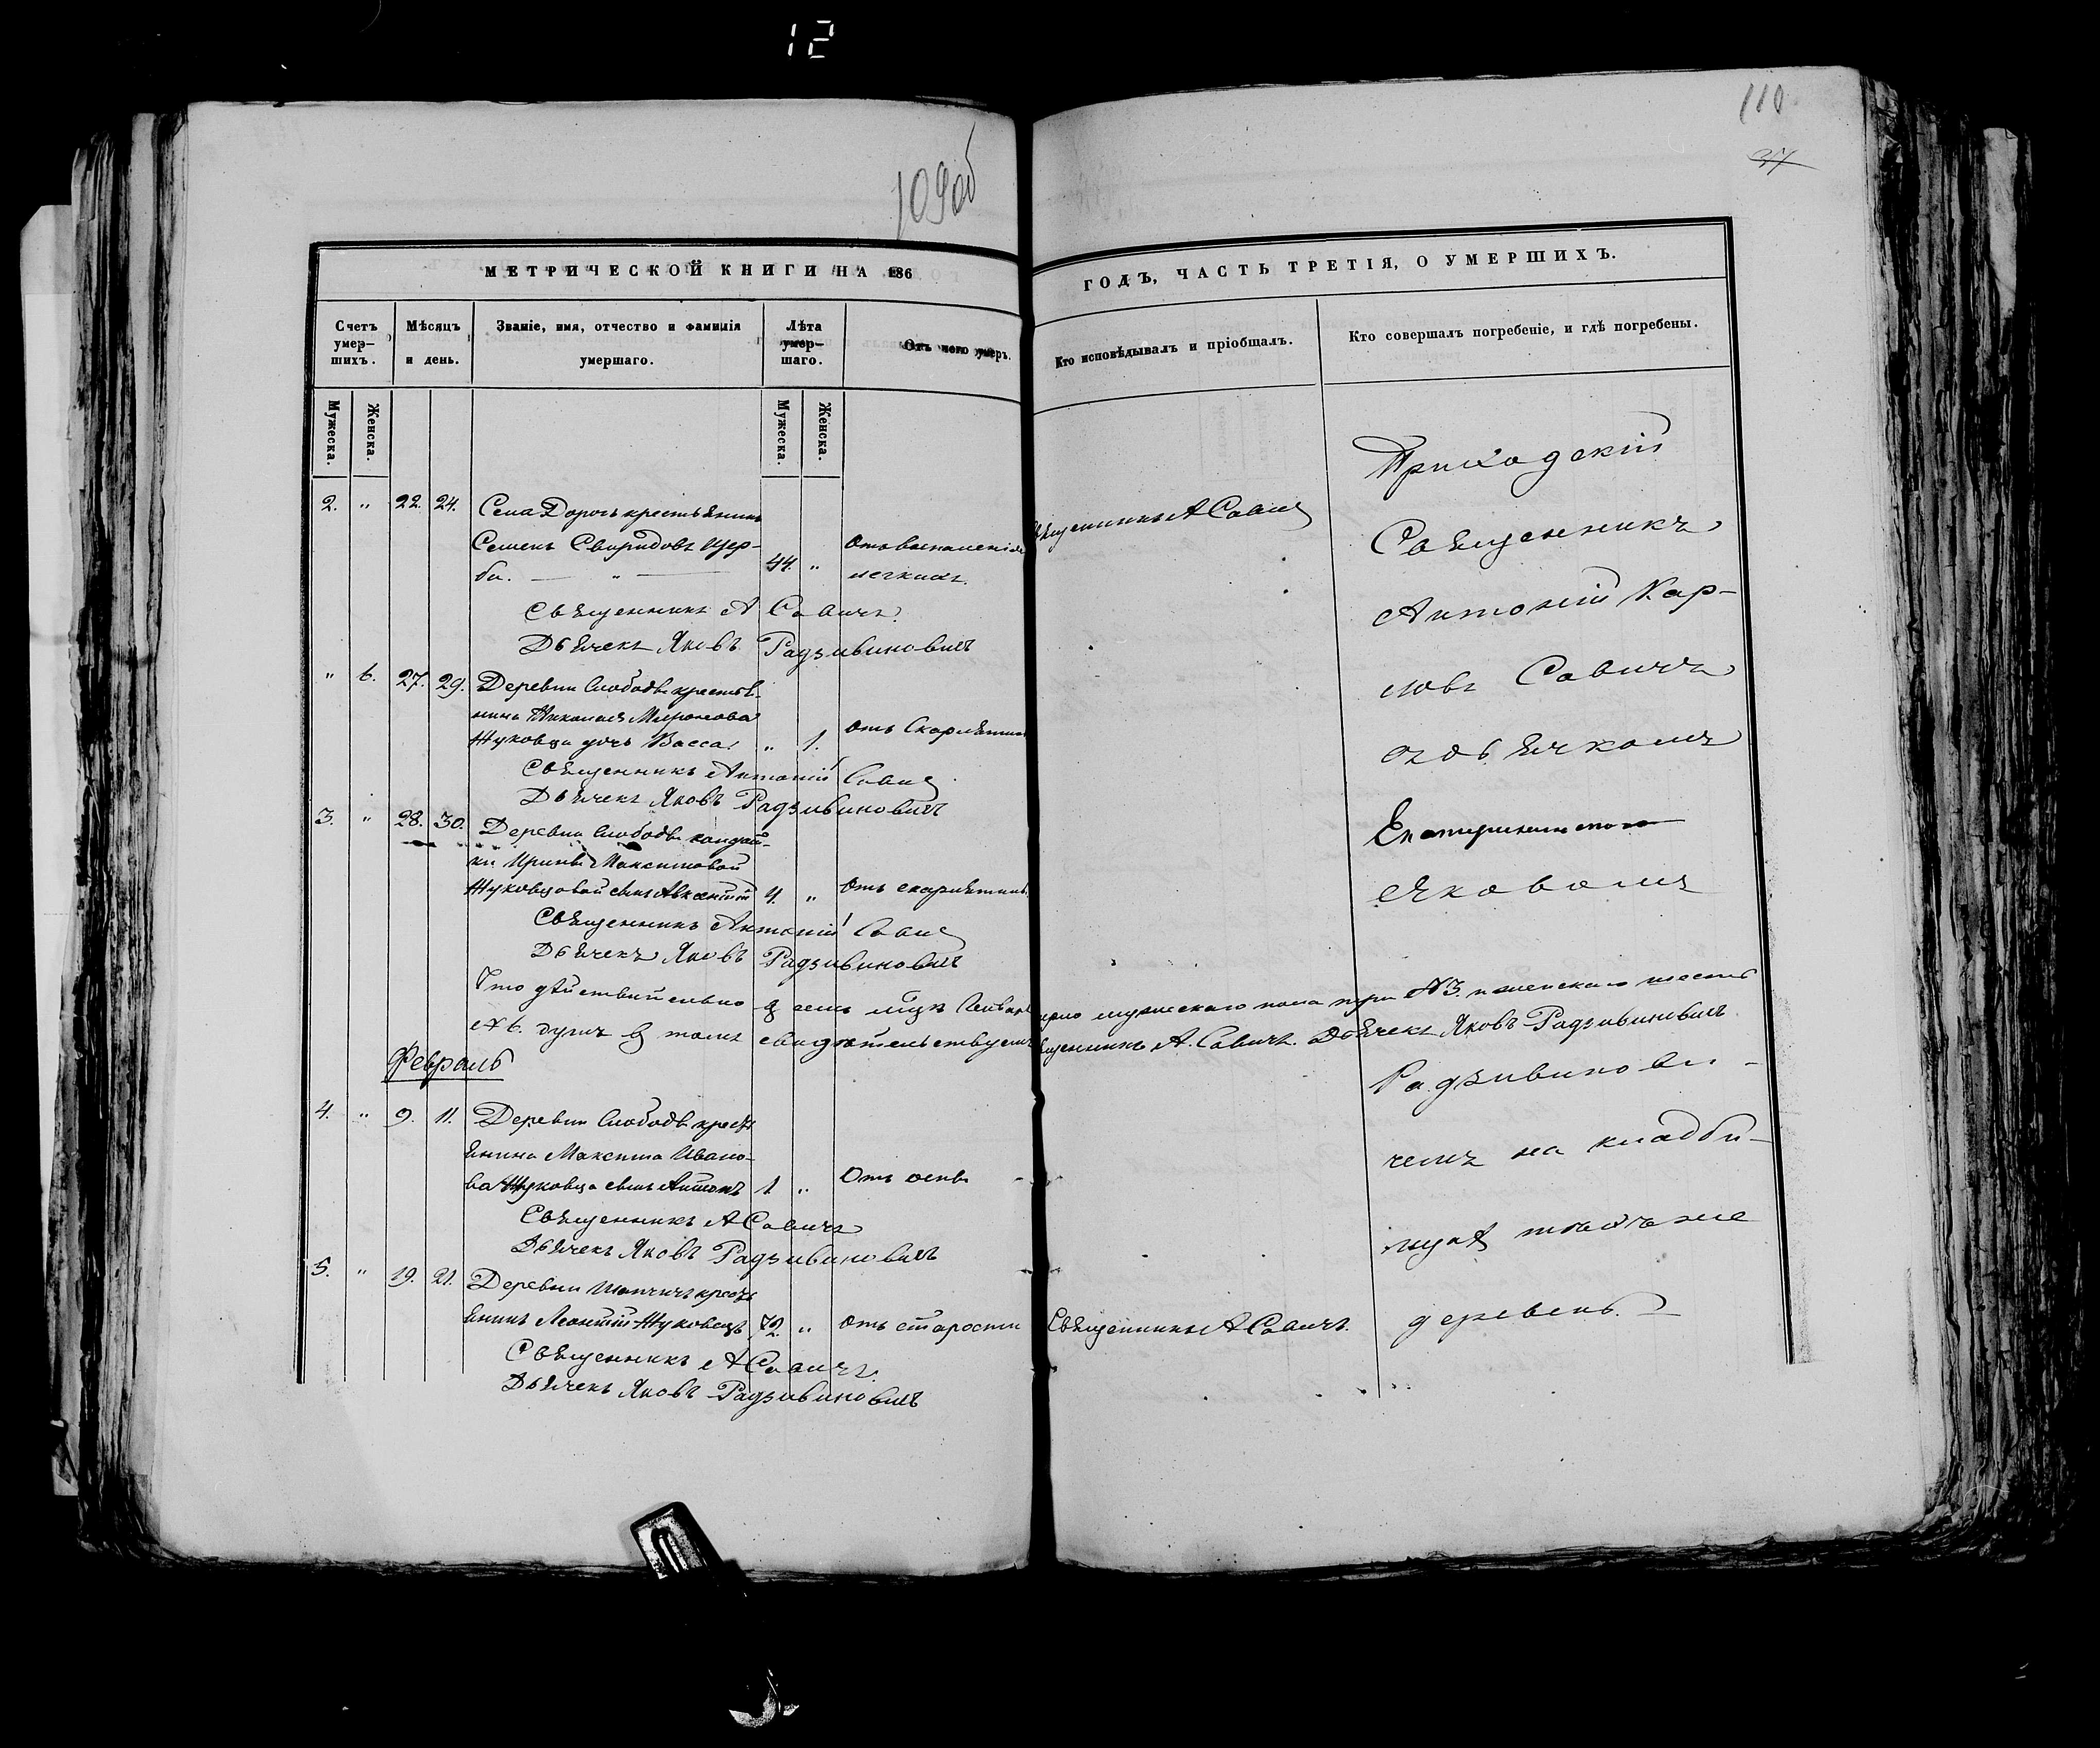 12
110
37
109об
МЕТРИЧЕСКОЙ КНИГИ НА 186
ГОДЪ, ЧАСТЬ ТРЕТІЯ, О УМЕРШИХЪ.
Счетъ умер–шихъ.
Мѣсяцъ и день.
Званіе, имя, отчество и фамилія умершаго.
Лѣта умер–шаго.
Отъ чего умеръ.
Кто исповѣдывалъ и пріобщалъ.
Кто совершалъ погребеніе, и гдѣ погребены.
Мужеска.
Женска.
Мужеска.
Женска.
2. " 22. 24. Села Дорогъ крестьянинъ
Семенъ Свиридовъ Щер-
ба. — " — 44. " Отъ воспаленія
легкихъ.
Священникъ А Савичъ
Священникъ А Савичъ.
Дьячекъ Яковъ Радзивиновичъ
" 6. 27. 29. Деревни Слободы крестья-
нина Николая Миронова
Жуковца дочь Васса " 1. Отъ Скарлятины
Священникъ Антоній Савич
Дьячекъ Яковъ Радзивиновичъ
3. " 28. 30. Деревни Слободы
Ирины Максимовой
Жуковцовой сынъ Авксентій 4. " Отъ скарлятины
Священникъ Антоній Савич
Дьячекъ Яковъ Радзивиновичъ
Что дѣйствительно въ семъ мцѣ Январѣ мужескаго пола три №3. и женскаго шесть
№ 6. душъ въ томъ свидѣтельствуемъ Священникъ А. Савичъ. Дьячекъ Яковъ Радзивиновичъ
Февраль
4. " 9. 11. Деревни Слободы крест
янина Максима Ивано-
ва Жуковца сынъ Антонъ 1. " Отъ оспы
Священникъ А Савичъ
Дьячекъ Яковъ Радзивиновичъ
5. " 19. 21. Деревни крестъ
янинъ Леонтій Жуковецъ 72. " Отъ старости Священникъ А Савичъ.
Священникъ А Савичъ.
Дьячекъ Яковъ Радзивиновичъ
Приходскій
Священникъ
Антоній Кар-
ловъ Савичъ
съ дьячкомъ
Яковомъ
Радзивинови-
чемъ на кладби-
щѣ тѣхъ же
деревень.